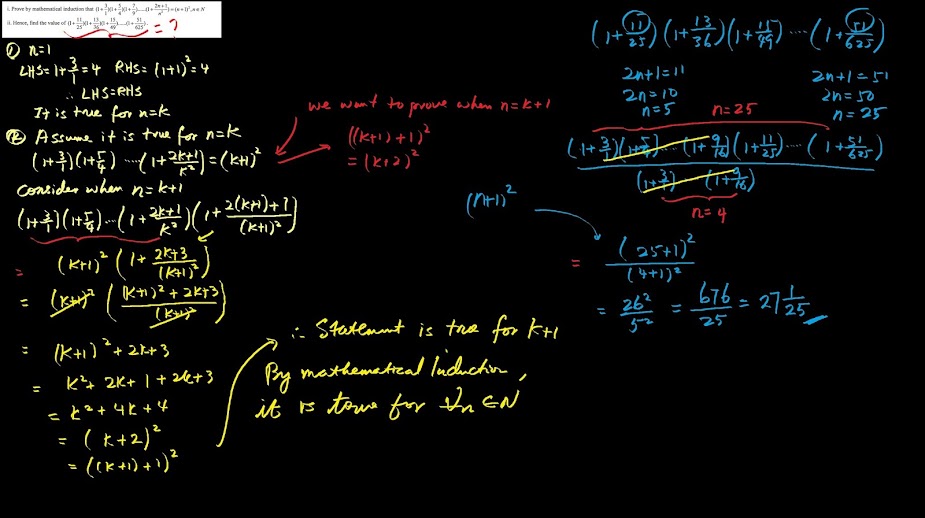 i. Prove by mathematical induction that (1+3/1)(1+5/4)(1+7/9).....(1+(2n+1)/n²)=(n+1)², n∈N
ii. Hence, find the value of (1+11/25)(1+13/36)(1+15/49).....(1+51/625) = ?
① n=1
LHS=1+3/1=4 RHS=(1+1)²=4
∴ LHS=RHS
It is true for n=k
② Assume it is true for n=k
(1+3/1)(1+5/4) ....(1+(2k+1)/k²)=(k+1)²
consider when n=k+1
(1+3/1)(1+5/4)...(1+(2k+1)/k²)(1+(2(k+1)+1)/(k+1)²)
= (k+1)² (1+(2k+3)/(k+1)²)
= (k+1)² (((k+1)²+2k+3)/(k+1)²)
= (k+1)²+2k+3
= k²+2k+1+2k+3
= k²+4k+4
= (k+2)²
= ((k+1)+1)²
we want to prove when n=k+1
((k+1)+1)²
=(k+2)²
∴ Statement is true for k+1
By mathematical Induction,
it is true for ∀n∈N
(1+11/25)(1+13/36)(1+15/49)....(1+51/625)
2n+1=11 2n+1=51
2n=10 2n=50
n=5 n=25 n=25
(1+3/1)(1+5/4)...(1+9/16)(1+11/25)...(1+51/625)
(1+3/1)....(1+9/16)
n=4
(n+1)²
= (25+1)²/(4+1)²
= 26²/5² = 676/25 = 27 1/25